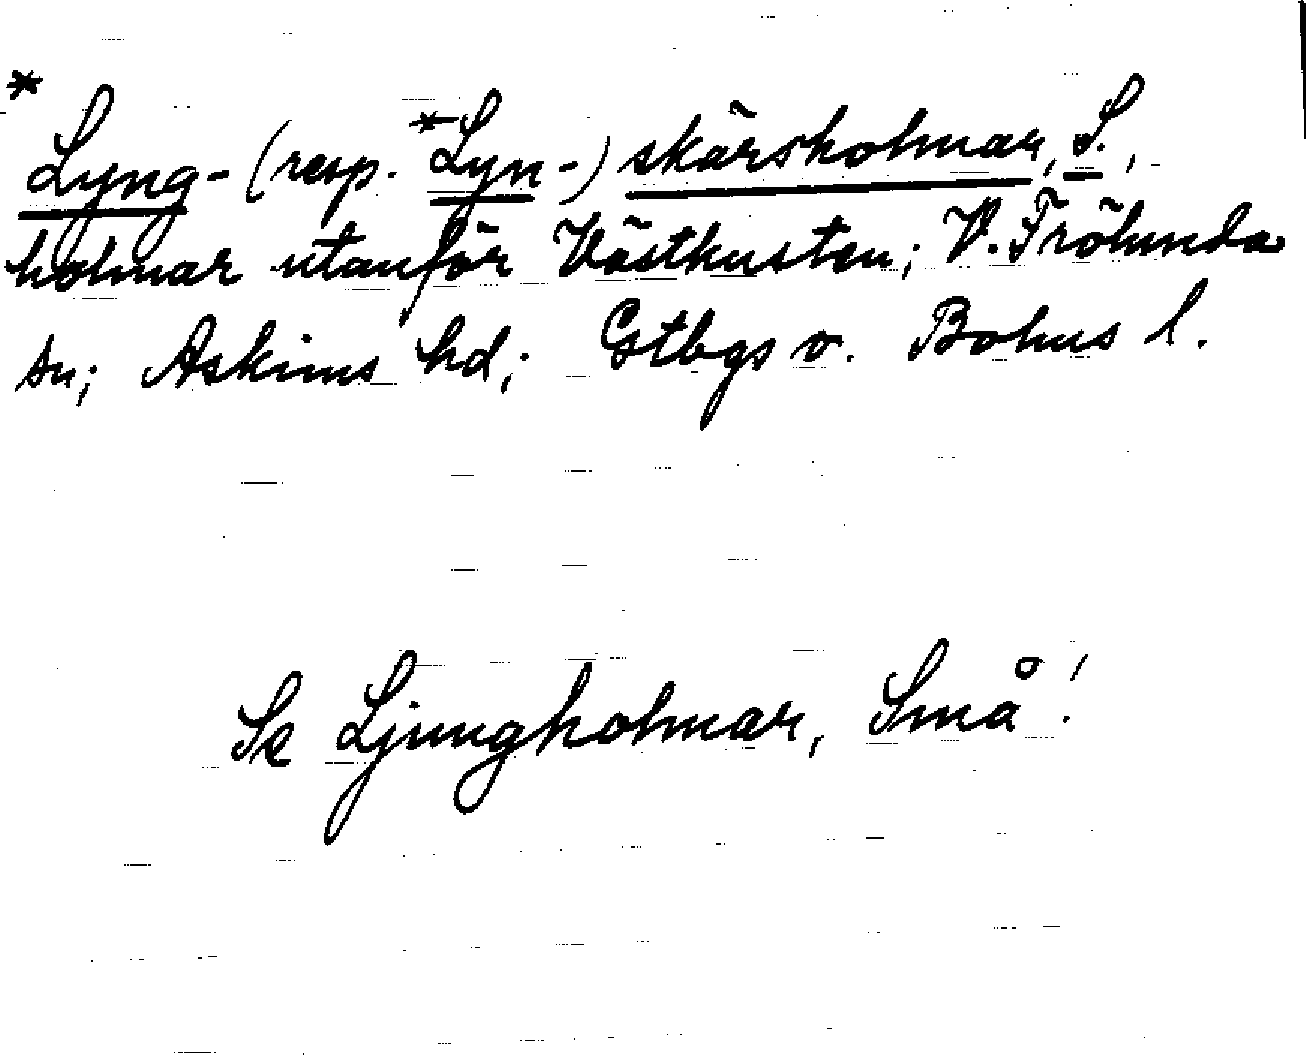 *Lyng- (resp. *Lyn-) skärsholmar, S.,
holmar utanför Västkusten; V. Frölunda
sn; Askims hd; Gtbgs o. Bohus l.
Se Ljungholmar, Små!